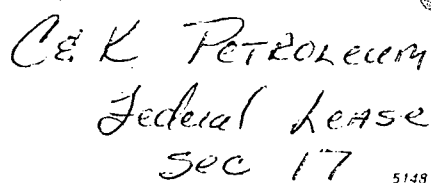 C & K PETROLEUM
Federal Lease
Sec 17
5148